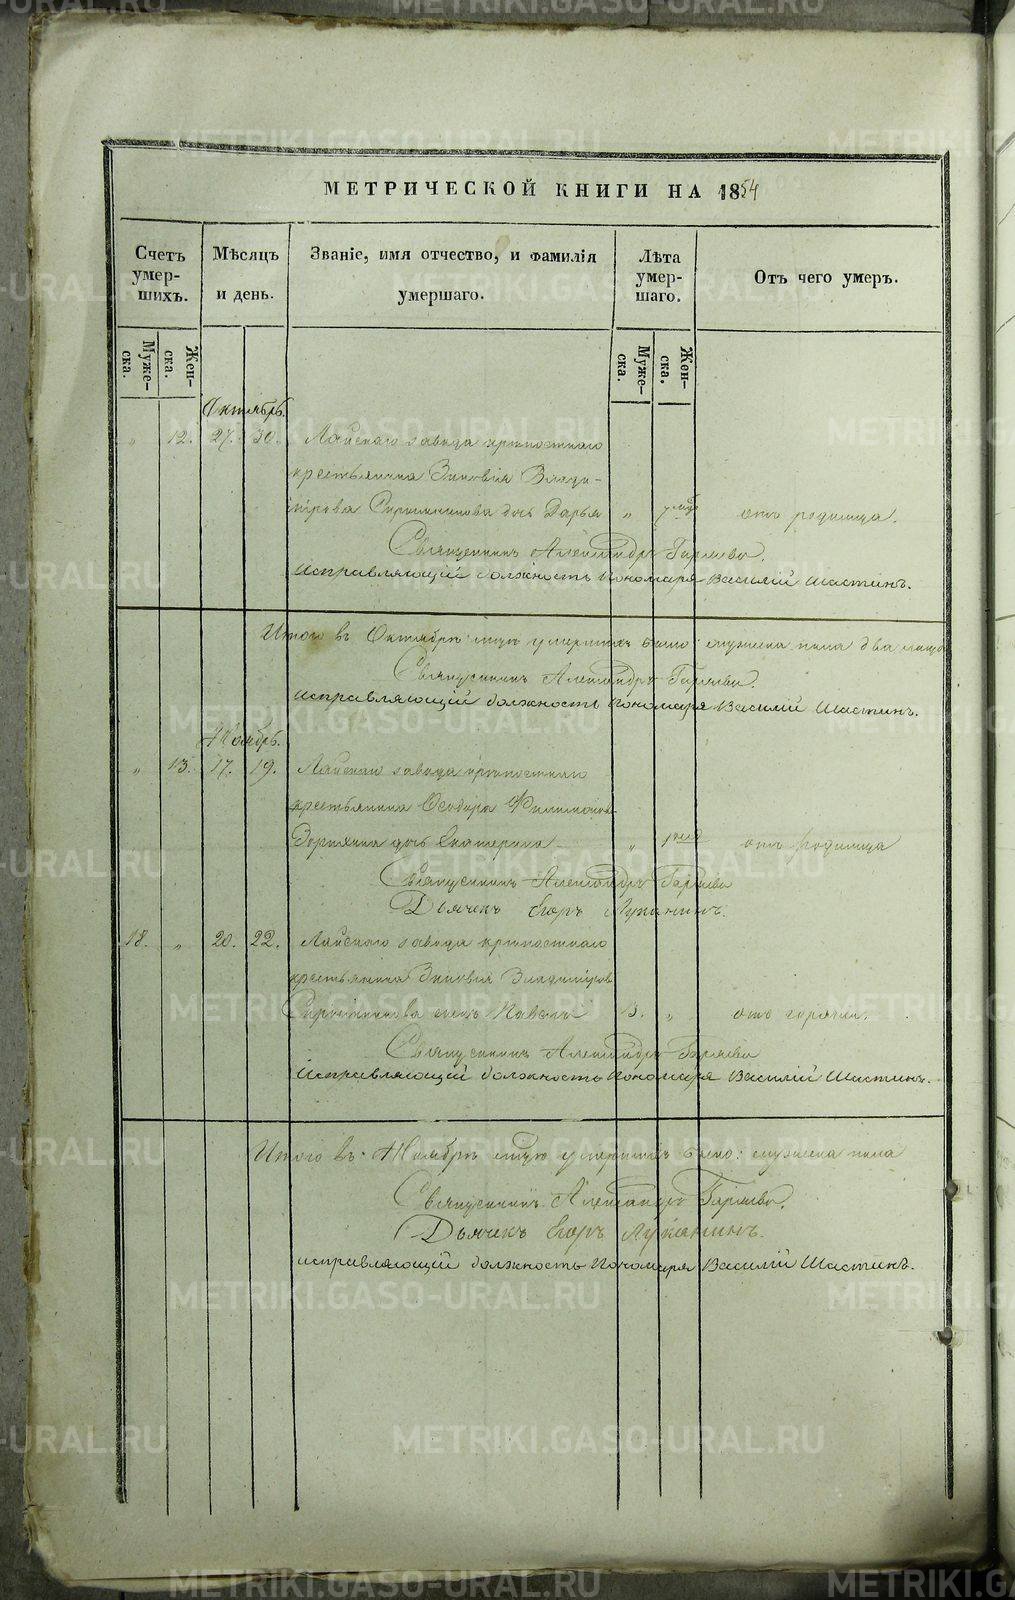 МЕТРИЧЕСКОЙ КНИГИ НА 1854
Счетъ умер- шихъ.
Мѣсяцъ и день.
Званіе, имя отчество, и фамилія умершаго.
Лѣта умер- шаго.
Отъ чего умеръ.
Муже- ска.
Жен- ска.
Муже- ска.
Жен- ска.
Октябрь.
" 12. 27. 30. Лайскаго завода крѣпостнаго
крестьянина Зиновія Влади-
мірова дочь Дарья " 7 отъ родимца.
Священникъ Александръ
Исправляющій должность Пономаря Василій Шастинъ.
Итого въ Октябрѣ умершихъ было: мужеска пола два
Священникъ Александръ
Исправляющій должность Пономаря Василій Шастинъ.
Ноябрь.
" 13. 17. 19. Лайскаго завода крѣпостнаго
крестьянина Ѳеодора Филимонова
дочь Екатерина " 1 отъ родимца
Священникъ Александръ
Дьячекъ Егоръ Луканинъ.
18. " 20. 22. Лайскаго завода крѣпостнаго
крестьянина Зиновія Владимірова
сынъ Павелъ 3. " отъ горячки.
Священникъ Александръ
Исправляющій должность Пономаря Василій Шастинъ.
Итого въ Ноябрѣ умершихъ было: мужеска пола
Священникъ Александръ
Дьячекъ Егоръ Луканинъ.
исправляющій должность Пономаря Василій Шастинъ.
METRIKI.GASO-URAL.RU